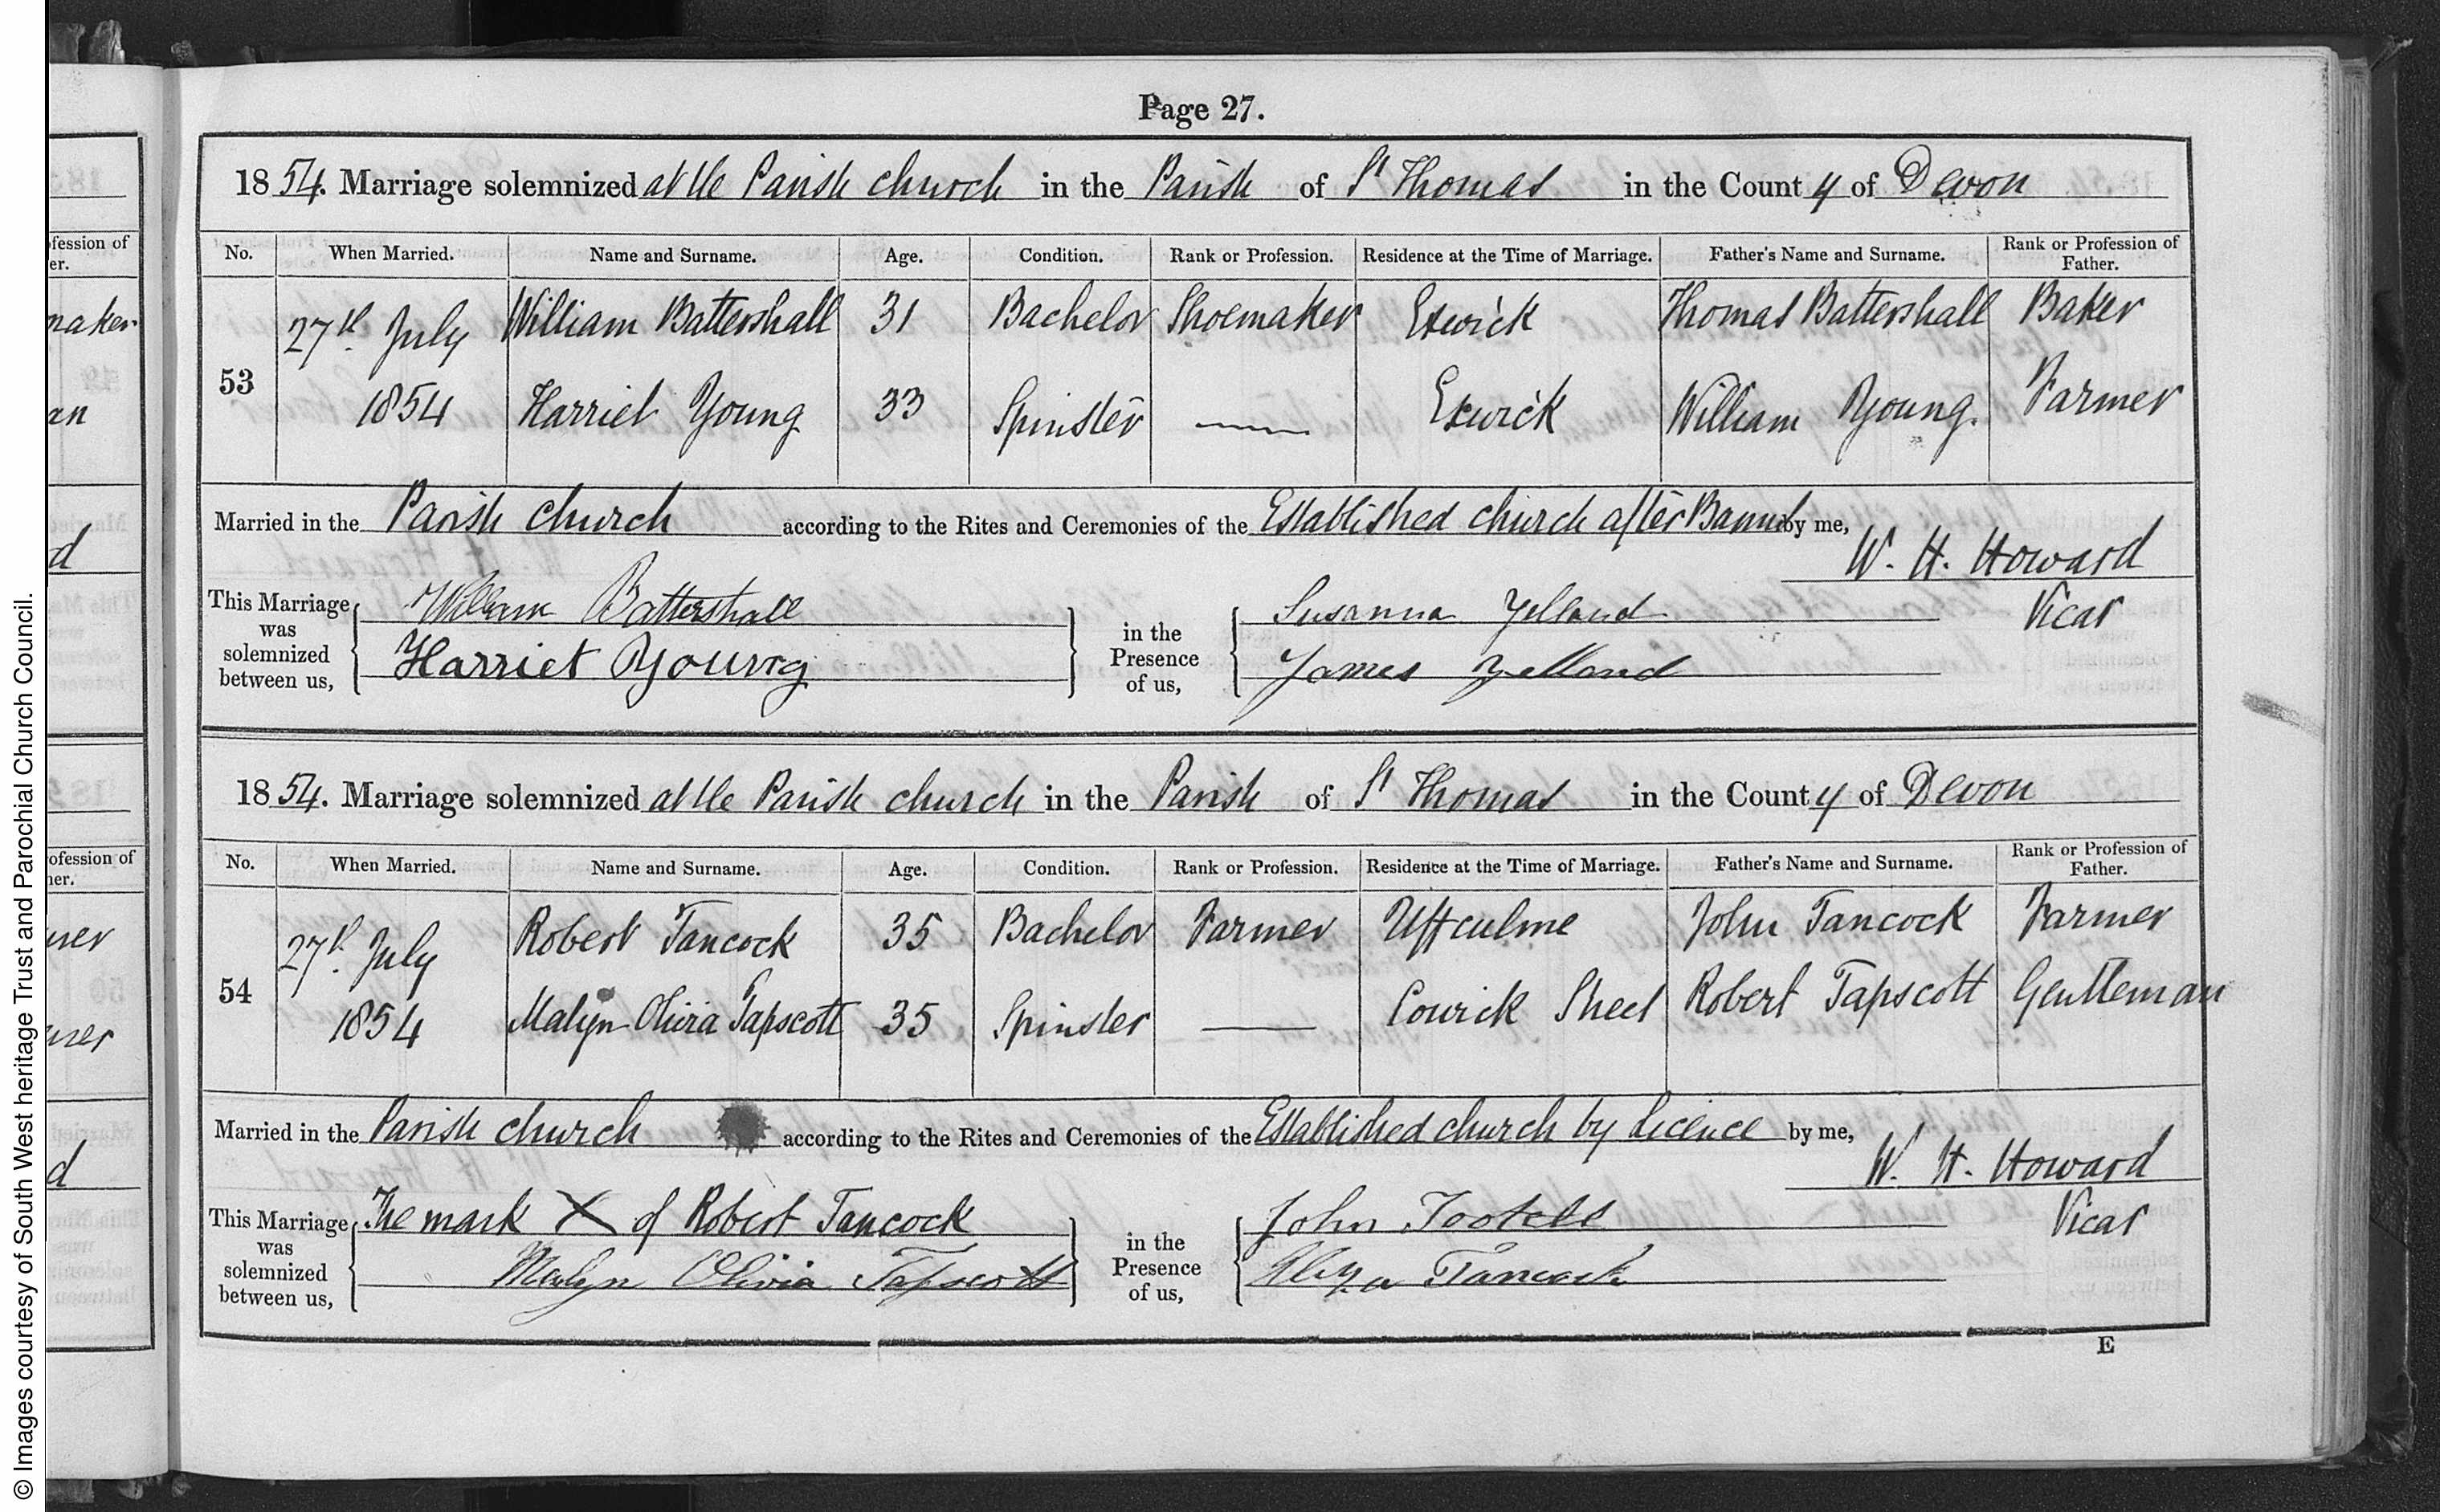 Page 27.
1854. Marriage solemnized at the Parish church in the Parish of St Thomas in the County of Devon
No. When Married. Name and Surname. Age. Condition. Rank or Profession. Residence at the Time of Marriage. Father's Name and Surname. Rank or Profession of Father.
53 27th July William Battershall 31 Bachelor Shoemaker Exwick Thomas Battershall Baker
1854 Harriet Young 33 Spinster — Exwick William Young. Farmer
Married in the Parish church according to the Rites and Ceremonies of the Established church after Banns by me,
W. H. Howard
Vicar
This Marriage was solemnized between us, William Battershall Harriet Young in the Presence of us, Susanna Yelland James Yelland
1854. Marriage solemnized at the Parish church in the Parish of St Thomas in the County of Devon
No. When Married. Name and Surname. Age. Condition. Rank or Profession. Residence at the Time of Marriage. Father's Name and Surname. Rank or Profession of Father.
54 27th July Robert Tancock 35 Bachelor Farmer Uffculme John Tancock Farmer
1854 Malyn Olivia Tapscott 35 Spinster — Cowick Street Robert Tapscott Gentleman
Married in the Parish church according to the Rites and Ceremonies of the Established church by Licence by me,
W. H. Howard
Vicar
This Marriage was solemnized between us, The mark X of Robert Tancock Malyn Olivia Tapscott in the Presence of us, John Tootell Eliza Tancock
E
© Images courtesy of South West heritage Trust and Parochial Church Council.